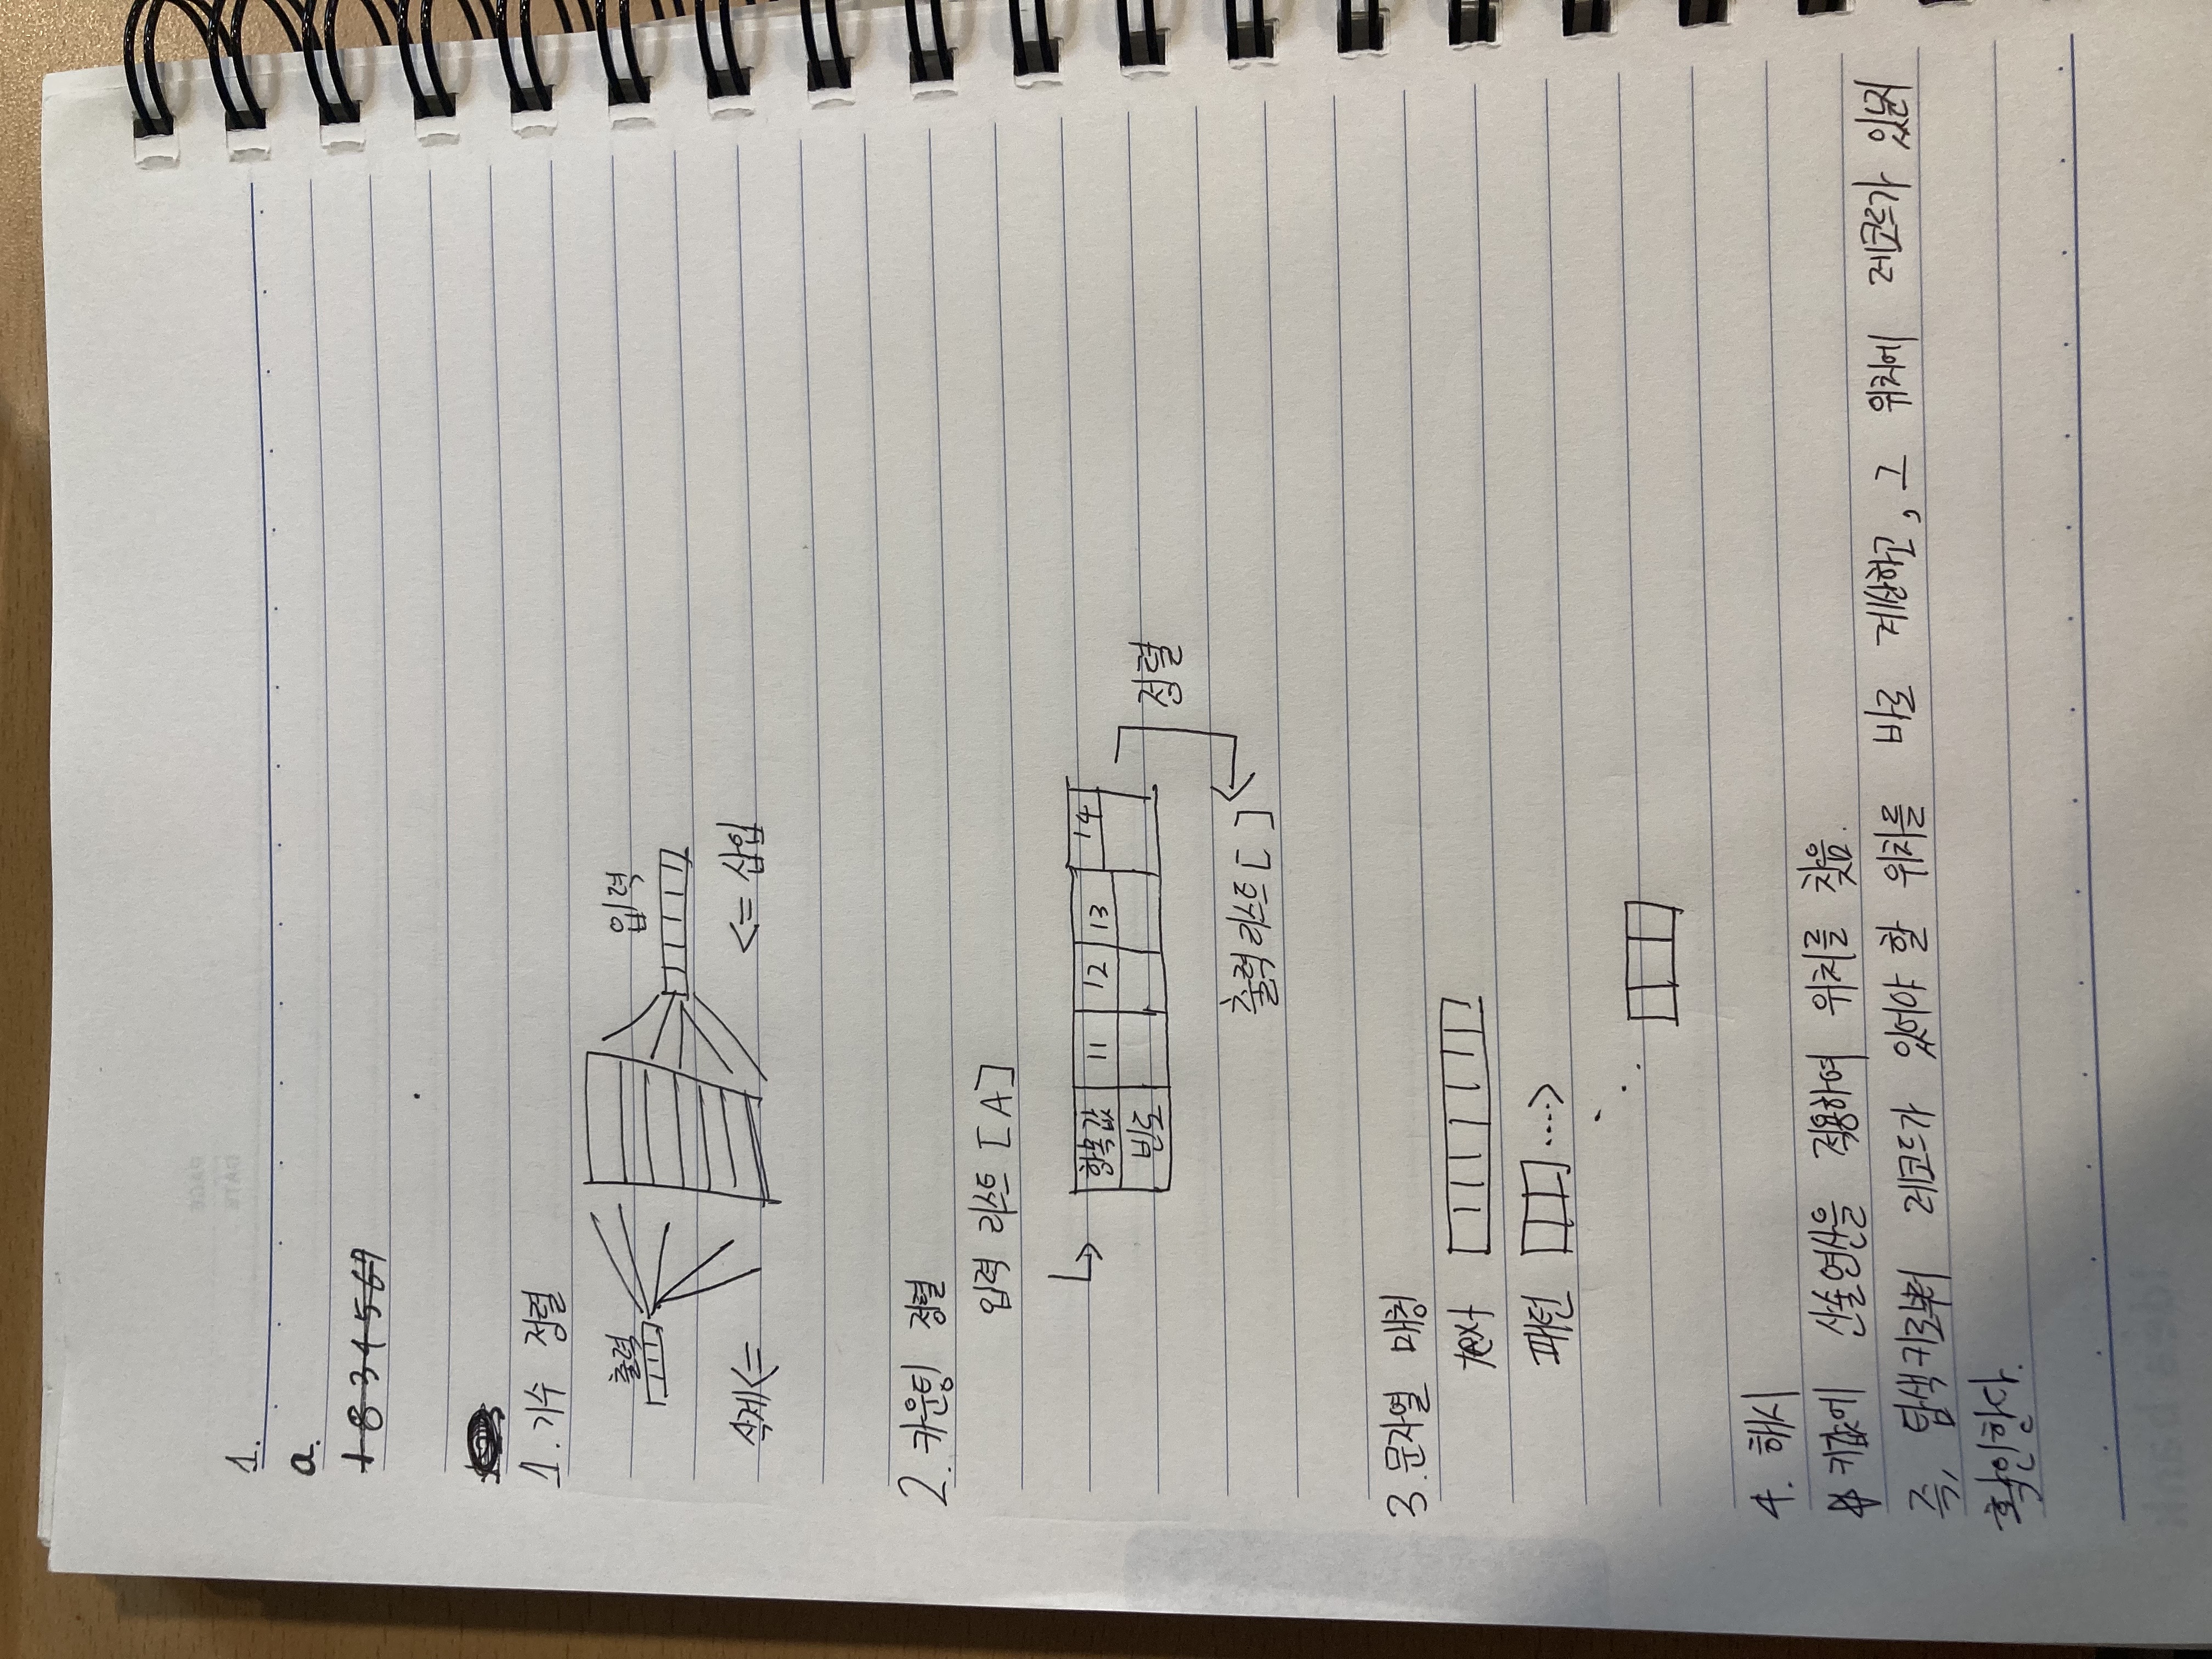 PAGE
DATE
1.
a.
1 8 3 4 5 6 7
1. 기수 정렬
출력
입력
삭제<=
<= 삽입
2. 카운팅 정렬
입력 리스트 [A]
항목값 11 12 13 14
빈도
정렬
출력 리스트 [ ]
3. 문자열 매칭
text
패턴
4. 해시
키값에 산술연산을 적용하여 위치를 찾음.
즉, 탐색키로부터 레코드가 있어야 할 위치를 바로 계산하고, 그 위치에 레코드가 있는지
확인한다.
idea bank